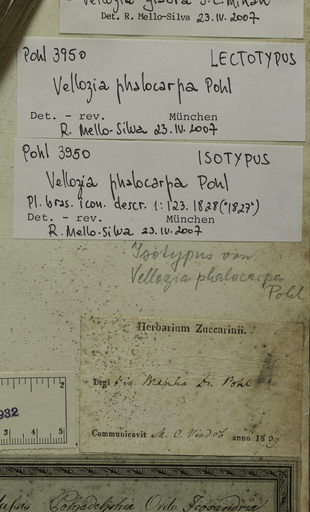 Vellozia glabra J.C. Mikan
Det. R. Mello-Silva 23.IV.2007
Pohl 3950 LECTOTYPUS
Vellozia phalocarpa Pohl
Det. - rev. München
R. Mello-Silva 23.IV.2007
Pohl 3950 ISOTYPUS
Vellozia phalocarpa Pohl
Pl. bras. icon. descr. 1: 123. 1828 ("1827")
Det. - rev. München
R. Mello-Silva 23.IV.2007
Isotypus von
Vellozia phalocarpa
Pohl
Herbarium Zuccarinii.
Legi Dr. Pohl
Communicavit M. C. Vindob anno 18
2
932
3 4 5
Polyadelphia Ordo Icosandria